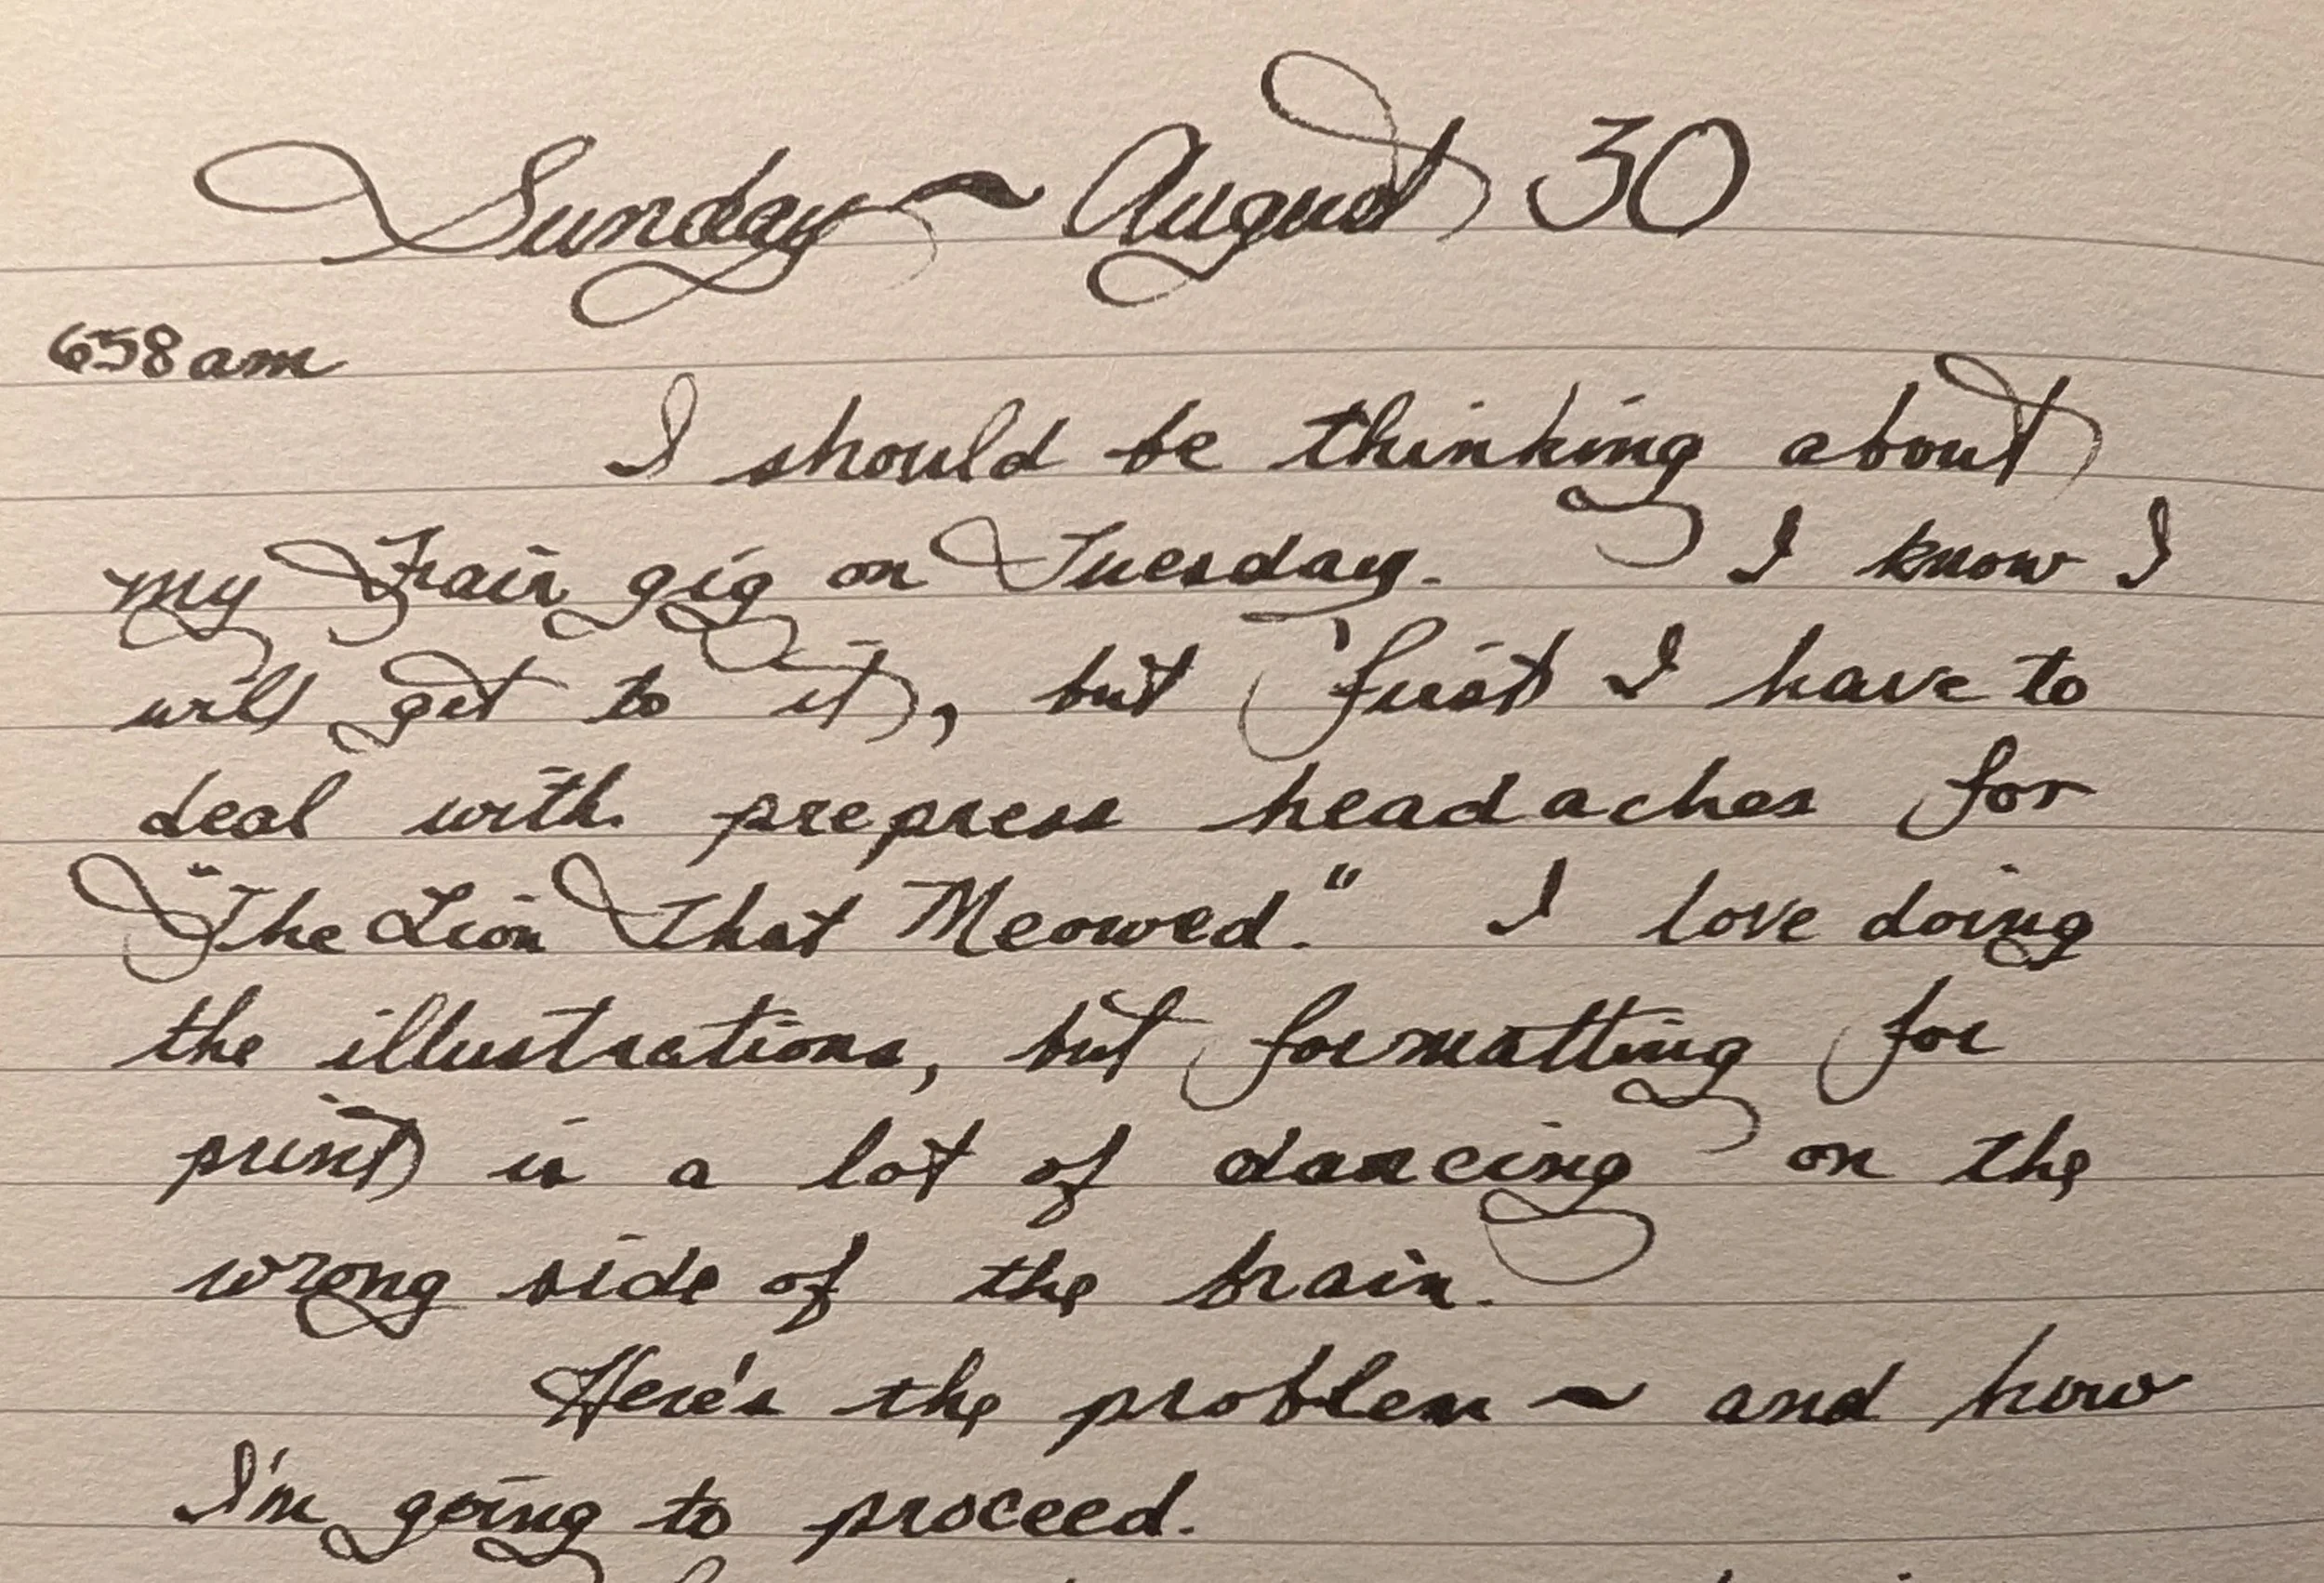 Sunday ~ August 30
658am
I should be thinking about
my Fair gig on Tuesday. I know I
will get to it, but first I have to
deal with prepress headaches for
"The Lion That Meowed." I love doing
the illustrations, but formatting for
print is a lot of dancing on the
wrong side of the brain.
Here's the problem ~ and how
I'm going to proceed.